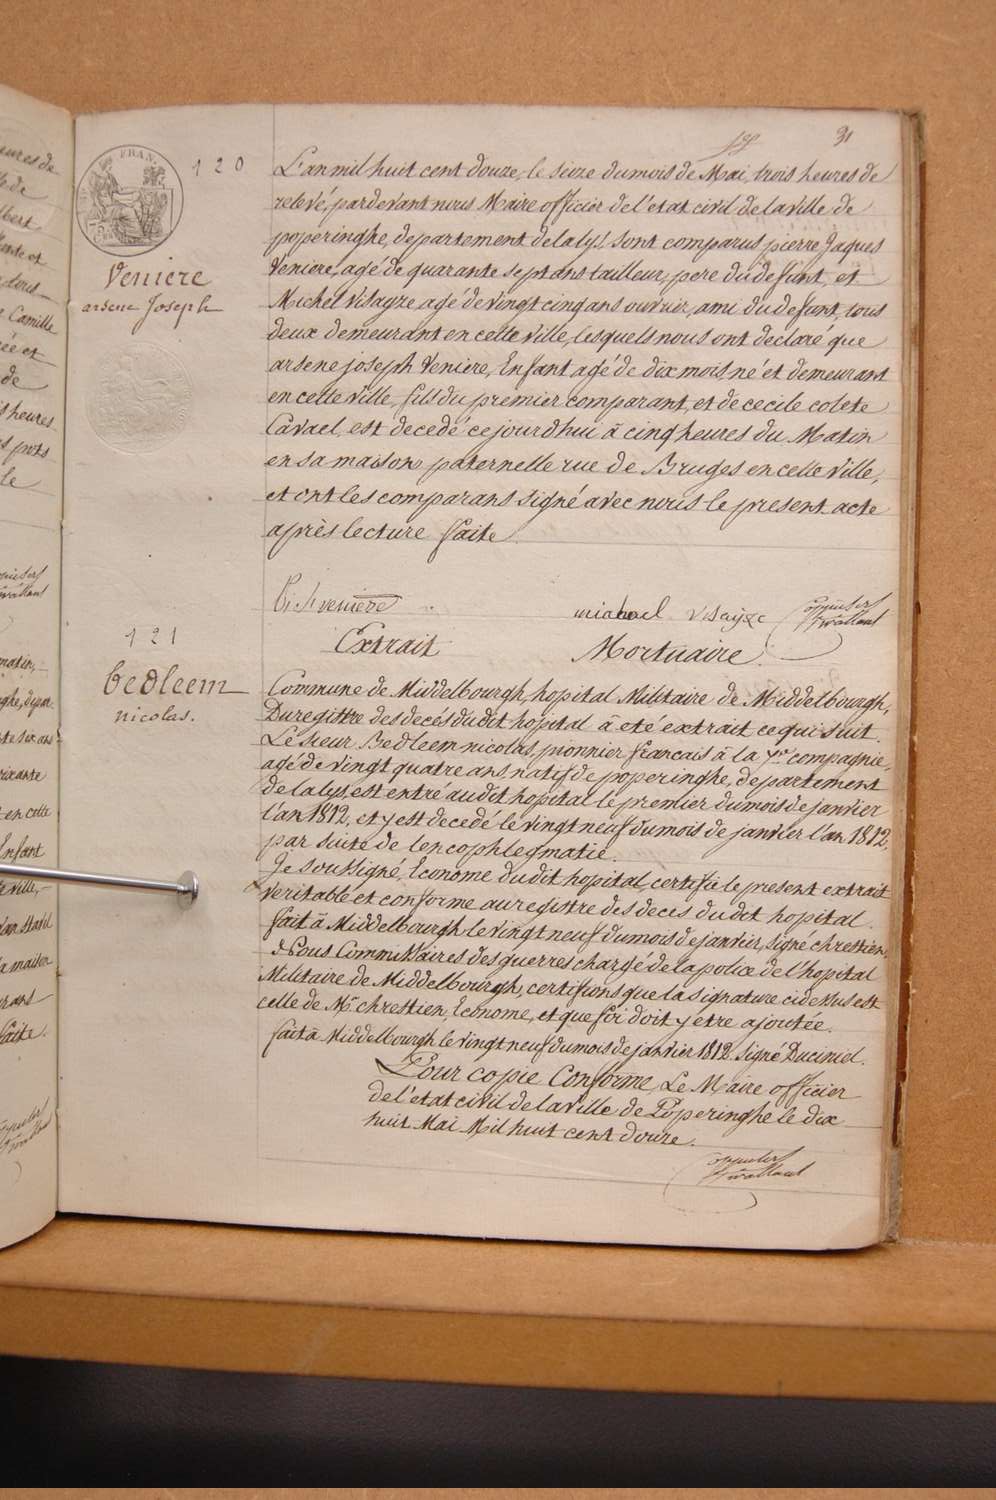 31
FRAN
120
Veniere
arsene Joseph
L'an mil huit cent douze, le seize du mois de Mai, trois heures de
relevé, pardevant nous Maire officier de l'etat civil de la ville de
poperinghe, departement de la lys sont comparus pierre Jaques
Veniere, agé de quarante sept ans tailleur, pere du defunt, et
Michel Visagze agé de vingt cinq ans ouvrier, ami du defunt, tous
deux demeurant en cette ville, lesquels nous ont declaré que
arsene joseph Veniere, Enfant agé de dix mois, né et demeurant
en cette ville, fils du premier comparant, et de cecile colete
Cavael, est decedé ce jourd'hui à cinq heures du Matin
en sa maison paternelle rue de Bruges en cette ville,
et ont les comparans signé avec nous le present acte
après lecture faite
veniere
michael visayze
121
bedleem
nicolas.
Extrait Mortuaire
Commune de Middelbourgh, hopital Militaire de Middelbourgh,
Duregittre des decés du dit hopital à eté extrait ce qui suit.
Le sieur Bedleem nicolas, pionnier francais à la 7me compagnie,
agé de vingt quatre ans, natif de poperinghe, departement
de la lys, est entré au dit hopital le premier du mois de janvier
l'an 1812, et y est decedé le vingt neuf du mois de janvier l'an 1812,
par suite de lencophlegmatie.
Je soussigné, Econome du dit hopital, certifie le present extrait
veritable et conforme au registre des deces du dit hopital.
fait à Middelbourgh le vingt neuf du mois de janvier, signé chrettien,
Nous Commissaires des guerres chargé de la police de l'hopital
Militaire de Middelbourgh, certifions que la signature ci dessus est
celle de Mr chrettien, Econome, et que foi doit y etre ajoutée.
fait à Middelbourgh le vingt neuf du mois de janvier 1812. signé Duciniel.
Pour copie Conforme, Le Maire officier
de l'etat civil de la ville de Poperinghe le dix
huit Mai Mil huit cent douze.